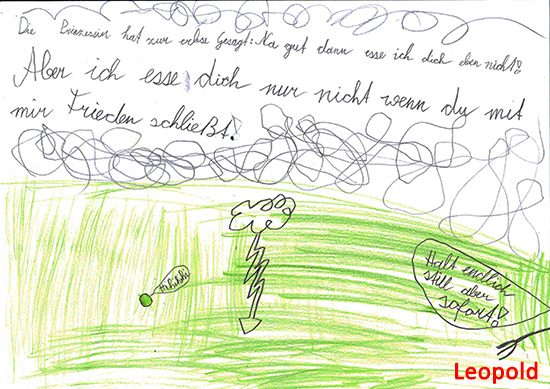 Die Prinzessin hat zur erbse Gesagt: Na gut dann esse ich dich eben nicht!
Aber ich esse dich nur nicht wenn du mit
mir Frieden schließt!
Hihihihi
Halt endlich
still aber
sofort!
Leopold